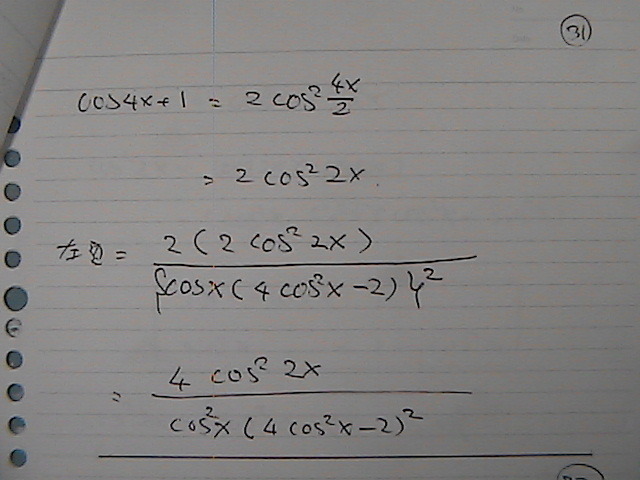 31
cos4x+1 = 2 cos² 4x/2
= 2 cos² 2x.
左边 = 2(2 cos² 2x) / {cosx(4 cos²x-2)}²
= 4 cos² 2x / cos²x (4 cos²x-2)²